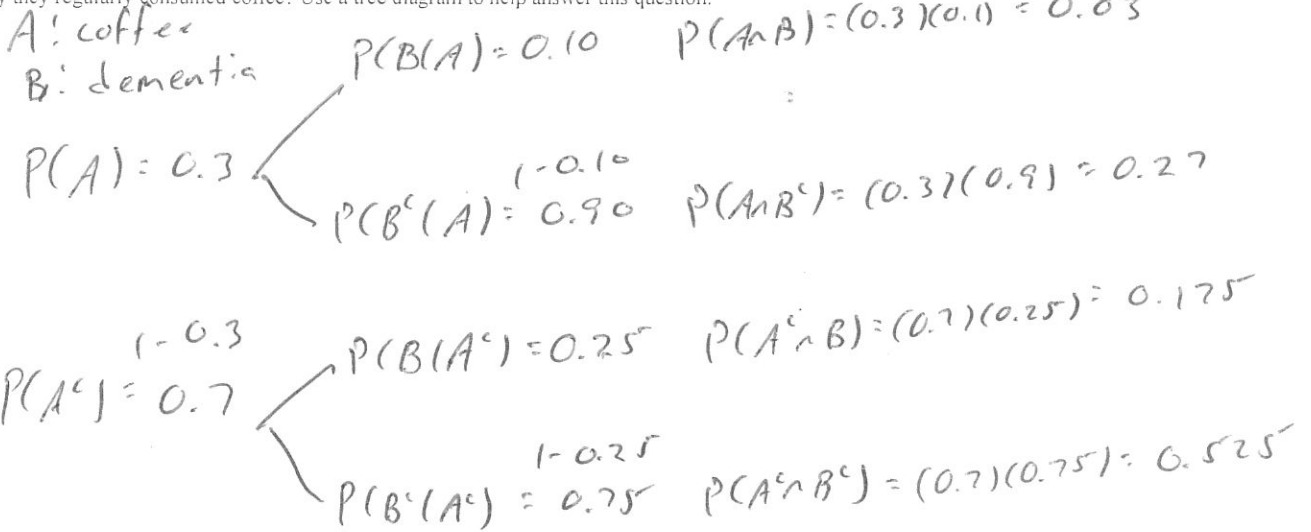 they regularly consumed coffee? Use a tree diagram to help answer this question.
A: coffee
B: dementia
P(B|A) = 0.10 P(A∩B) = (0.3)(0.1) = 0.03
=
P(A) = 0.3
1-0.10
P(Bᶜ|A) = 0.90 P(A∩Bᶜ) = (0.3)(0.9) = 0.27
1-0.3
P(B|Aᶜ) = 0.25 P(Aᶜ∩B) = (0.7)(0.25) = 0.175
P(Aᶜ) = 0.7
1-0.25
P(Bᶜ|Aᶜ) = 0.75 P(Aᶜ∩Bᶜ) = (0.7)(0.75) = 0.525